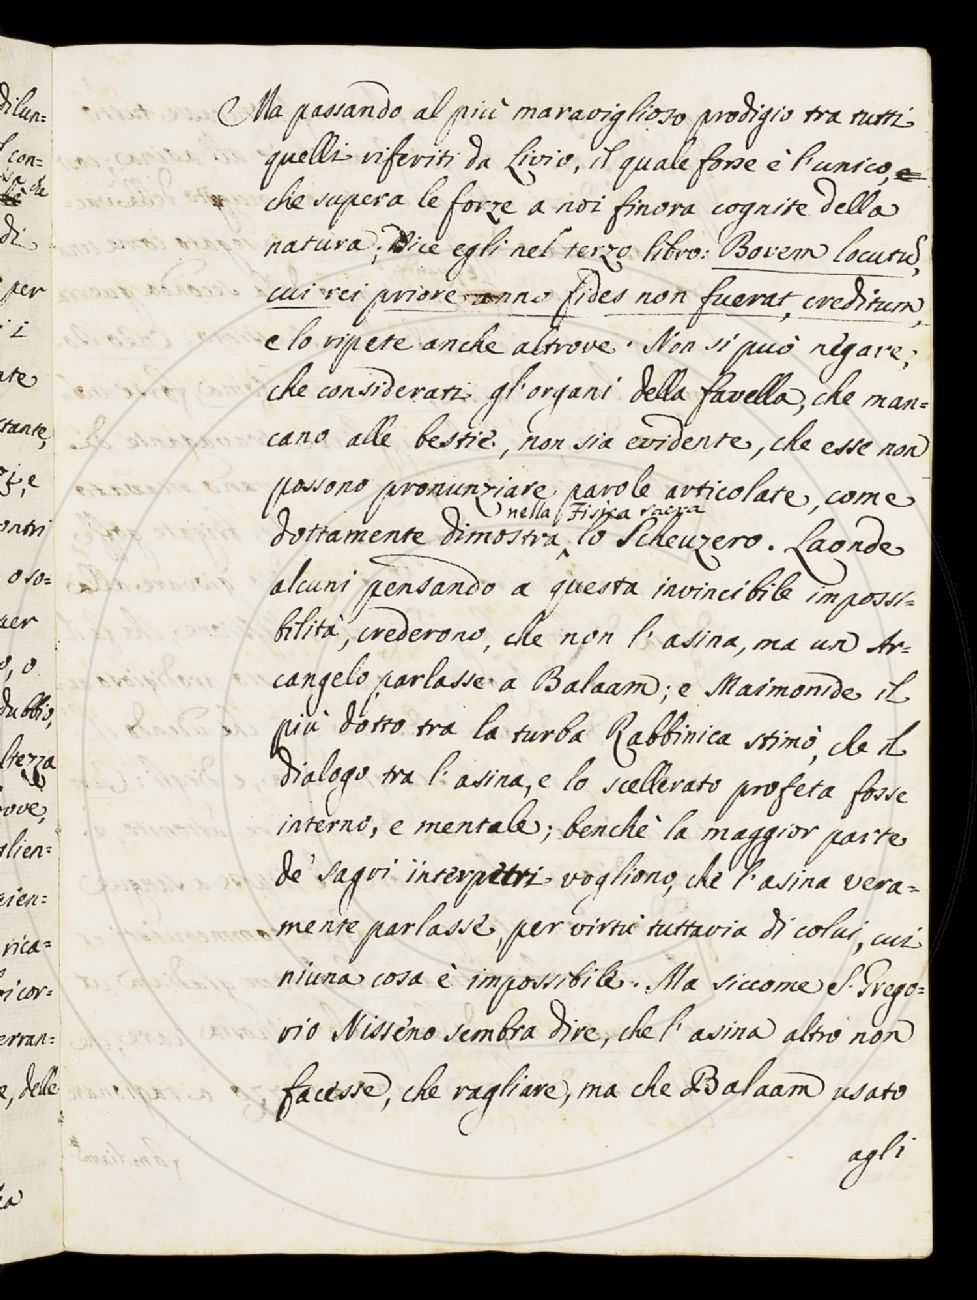 Ma passando al più maraviglioso prodigio tra tutti
quelli riferiti da Livio, il quale forse è l'unico,
che supera le forze a noi finora cognite della
natura; Dice egli nel terzo libro: Bovem locutu,
cui rei priore anno fides non fuerat, creditum,
e lo ripete anche altrove. Non si può negare,
che considerati gl'organi della favella, che man=
cano alle bestie, non sia evidente, che esse non
possono pronunziare parole articolate, come
nella Fisica sacra
dottamente dimostra lo Scheuzero. Laonde
alcuni pensando a questa invincibile impossi=
bilità, crederono, che non l'asina, ma un Ar=
cangelo parlasse a Balaam; e Maimonide il
più dotto tra la turba Rabbinica stimò, che il
dialogo tra l'asina, e lo scellerato profeta fosse
interno, e mentale; benchè la maggior parte
de' sagri interpetri vogliono, che l'asina vera=
mente parlasse, per virtù tuttavia di colui, cui
niuna cosa è impossibile. Ma siccome S. Grego=
rio Nisseno sembra dire, che l'asina altro non
facesse, che ragliare, ma che Balaam usato
agli
dilun=
con=
di
per
i
ate
stante,
e
ontri
o so=
uer
o, o
dubbio,
ltezza
rove,
lien=
rien=
rica=
ricor=
erran=
e, delle